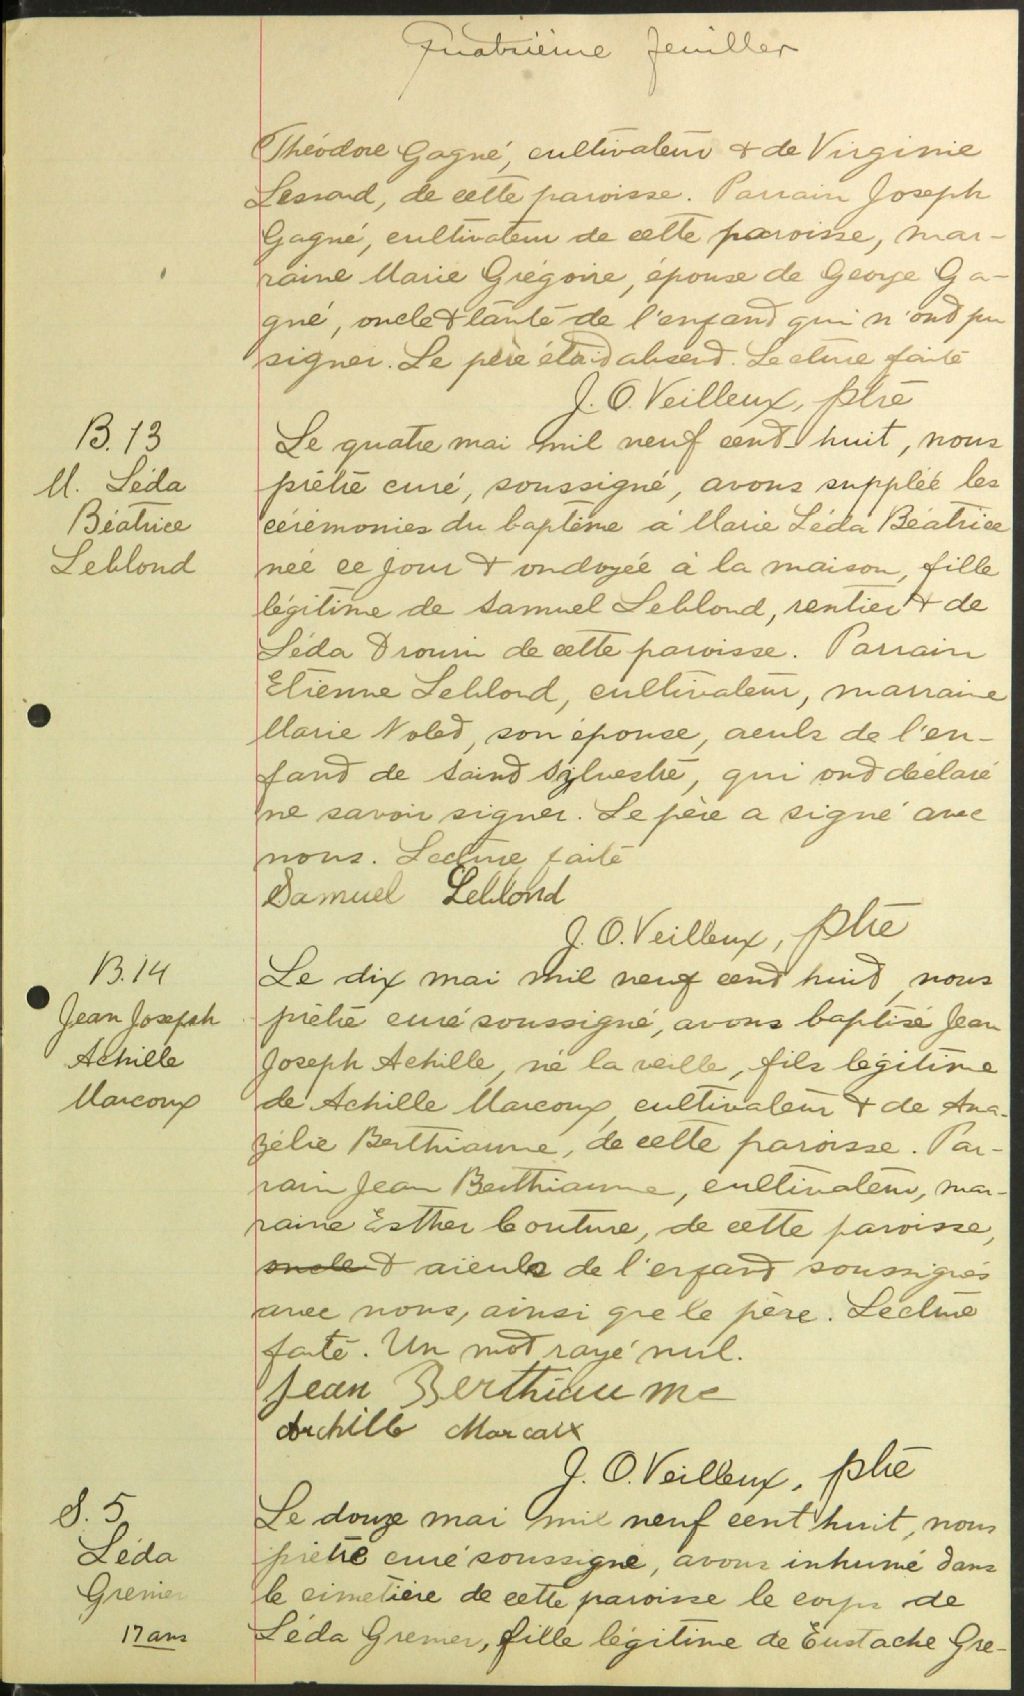 Quatrième feuillet
Théodore Gagné, cultivateur & de Virginie
Lessard, de cette paroisse. Parrain Joseph
Gagné, cultivateur de cette paroisse, mar-
raine Marie Grégoire, épouse de George Ga-
gné, oncle & tante de l'enfant qui n'ont pu
signer. Le père était absent. Lecture faite
J. O. Veilleux, ptre
B. 13
M. Léda
Béatrice
Leblond
Le quatre mai mil neuf cent huit, nous
prêtre curé, soussigné, avons supplée les
cérémonies du baptême à Marie Léda Béatrice
née ce jour & ondoyée à la maison, fille
légitime de Samuel Leblond, rentier & de
Léda Drouin de cette paroisse. Parrain
Etienne Leblond, cultivateur, marraine
Marie Nolet, son épouse, aeuls de l'en-
fant de Saint Sylvestre, qui ont déclaré
ne savoir signer. Le père a signé avec
nous. Lecture faite
Samuel Leblond
J. O. Veilleux, ptre
B. 14
Jean Joseph
Achille
Marcoux
Le dix mai mil neuf cent huit, nous
prêtre curé soussigné, avons baptisé Jean
Joseph Achille, né la veille, fils légitime
de Achille Marcoux, cultivateur & de Ana-
zélie Berthiaume, de cette paroisse. Par-
rain Jean Berthiaume, cultivateur, mar-
raine Esther Couture, de cette paroisse,
oncle & aïeuls de l'enfant soussignés
avec nous, ainsi que le père. Lecture
faite. Un mot rayé nul.
Jean Berthiaume
Archille Marcoux
J. O. Veilleux, ptre
S. 5
Léda
Grenier
17 ans
Le douze mai mil neuf cent huit, nous
prêtre curé soussigné, avons inhumé dans
le cimetière de cette paroisse le corps de
Léda Grenier, fille légitime de Eustache Gre-